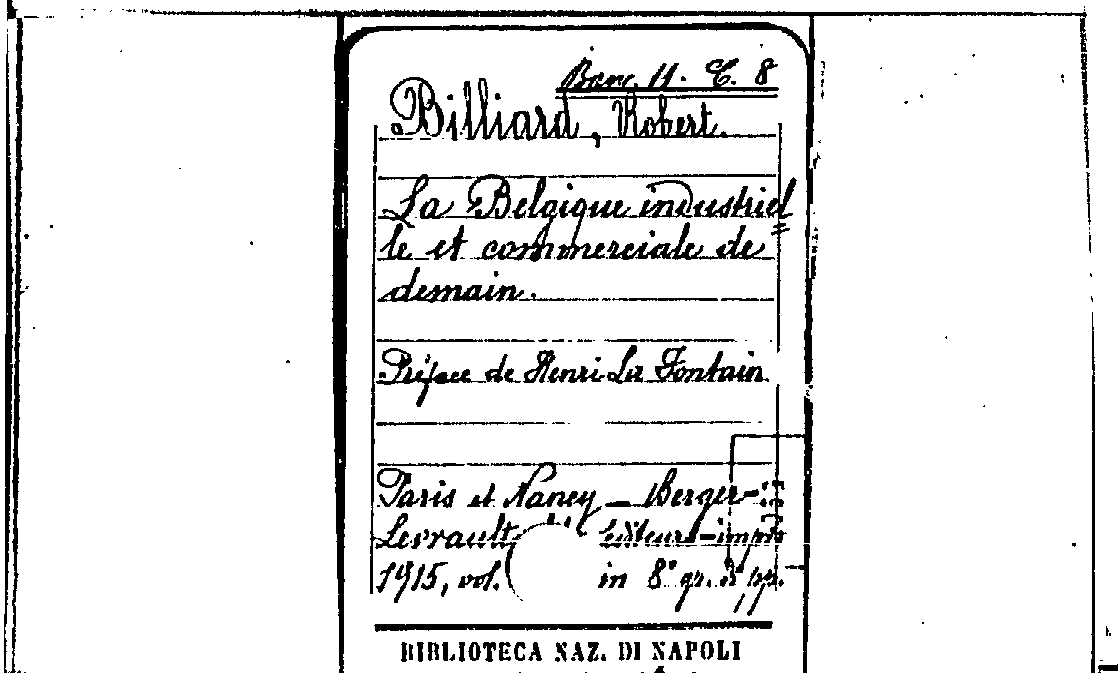 Banc. 11. C. 8
Billiard, Robert.
La Belgique industriel
le et commerciale de
demain.
Préface de Henri La Fontain
Paris et Nancy — Berger-
Levrault editeurs-impr
1915, vol. in 8° gr. pp.
BIBLIOTECA NAZ. DI NAPOLI